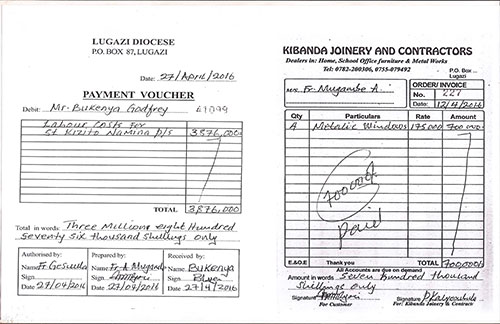 LUGAZI DIOCESE
P.O. BOX 87, LUGAZI
Date: 27/April/2016
PAYMENT VOUCHER
Debit: Mr. Bukenya Godfrey 61099
Labour Costs for
St Kizito Namina p/s 3,876,000=
TOTAL 3,876,000
Total in words: Three Million eight Hundred
Seventy Six thousand Shillings only
Authorised by: Prepared by: Received by:
Name: Fr Name: Fr. A Name: Bukenya
Sign Sign Sign
Date 27/04/2016 Date 27/04/2016 Date 27/4/2016
KIBANDA JOINERY AND CONTRACTORS
Dealers in: Home, School Office furniture & Metal Works
Tel: 0782-200306, 0755-079492
P.O. Box
Lugazi
M/s Fr. Mugambe A.
ORDER/INVOICE
No. 227
Date: 12/4/2016
Qty Particulars Rate Amount
4 Metalic Windows 175000 700,000=
700,000/=
Paid
E.&O.E Thank you TOTAL 700,000/=
All Accounts are due on demand
Amount in words Seven hundred thousand
Shillings only
Signature Signature
For Customer For: Kibanda Joinery & Contracts